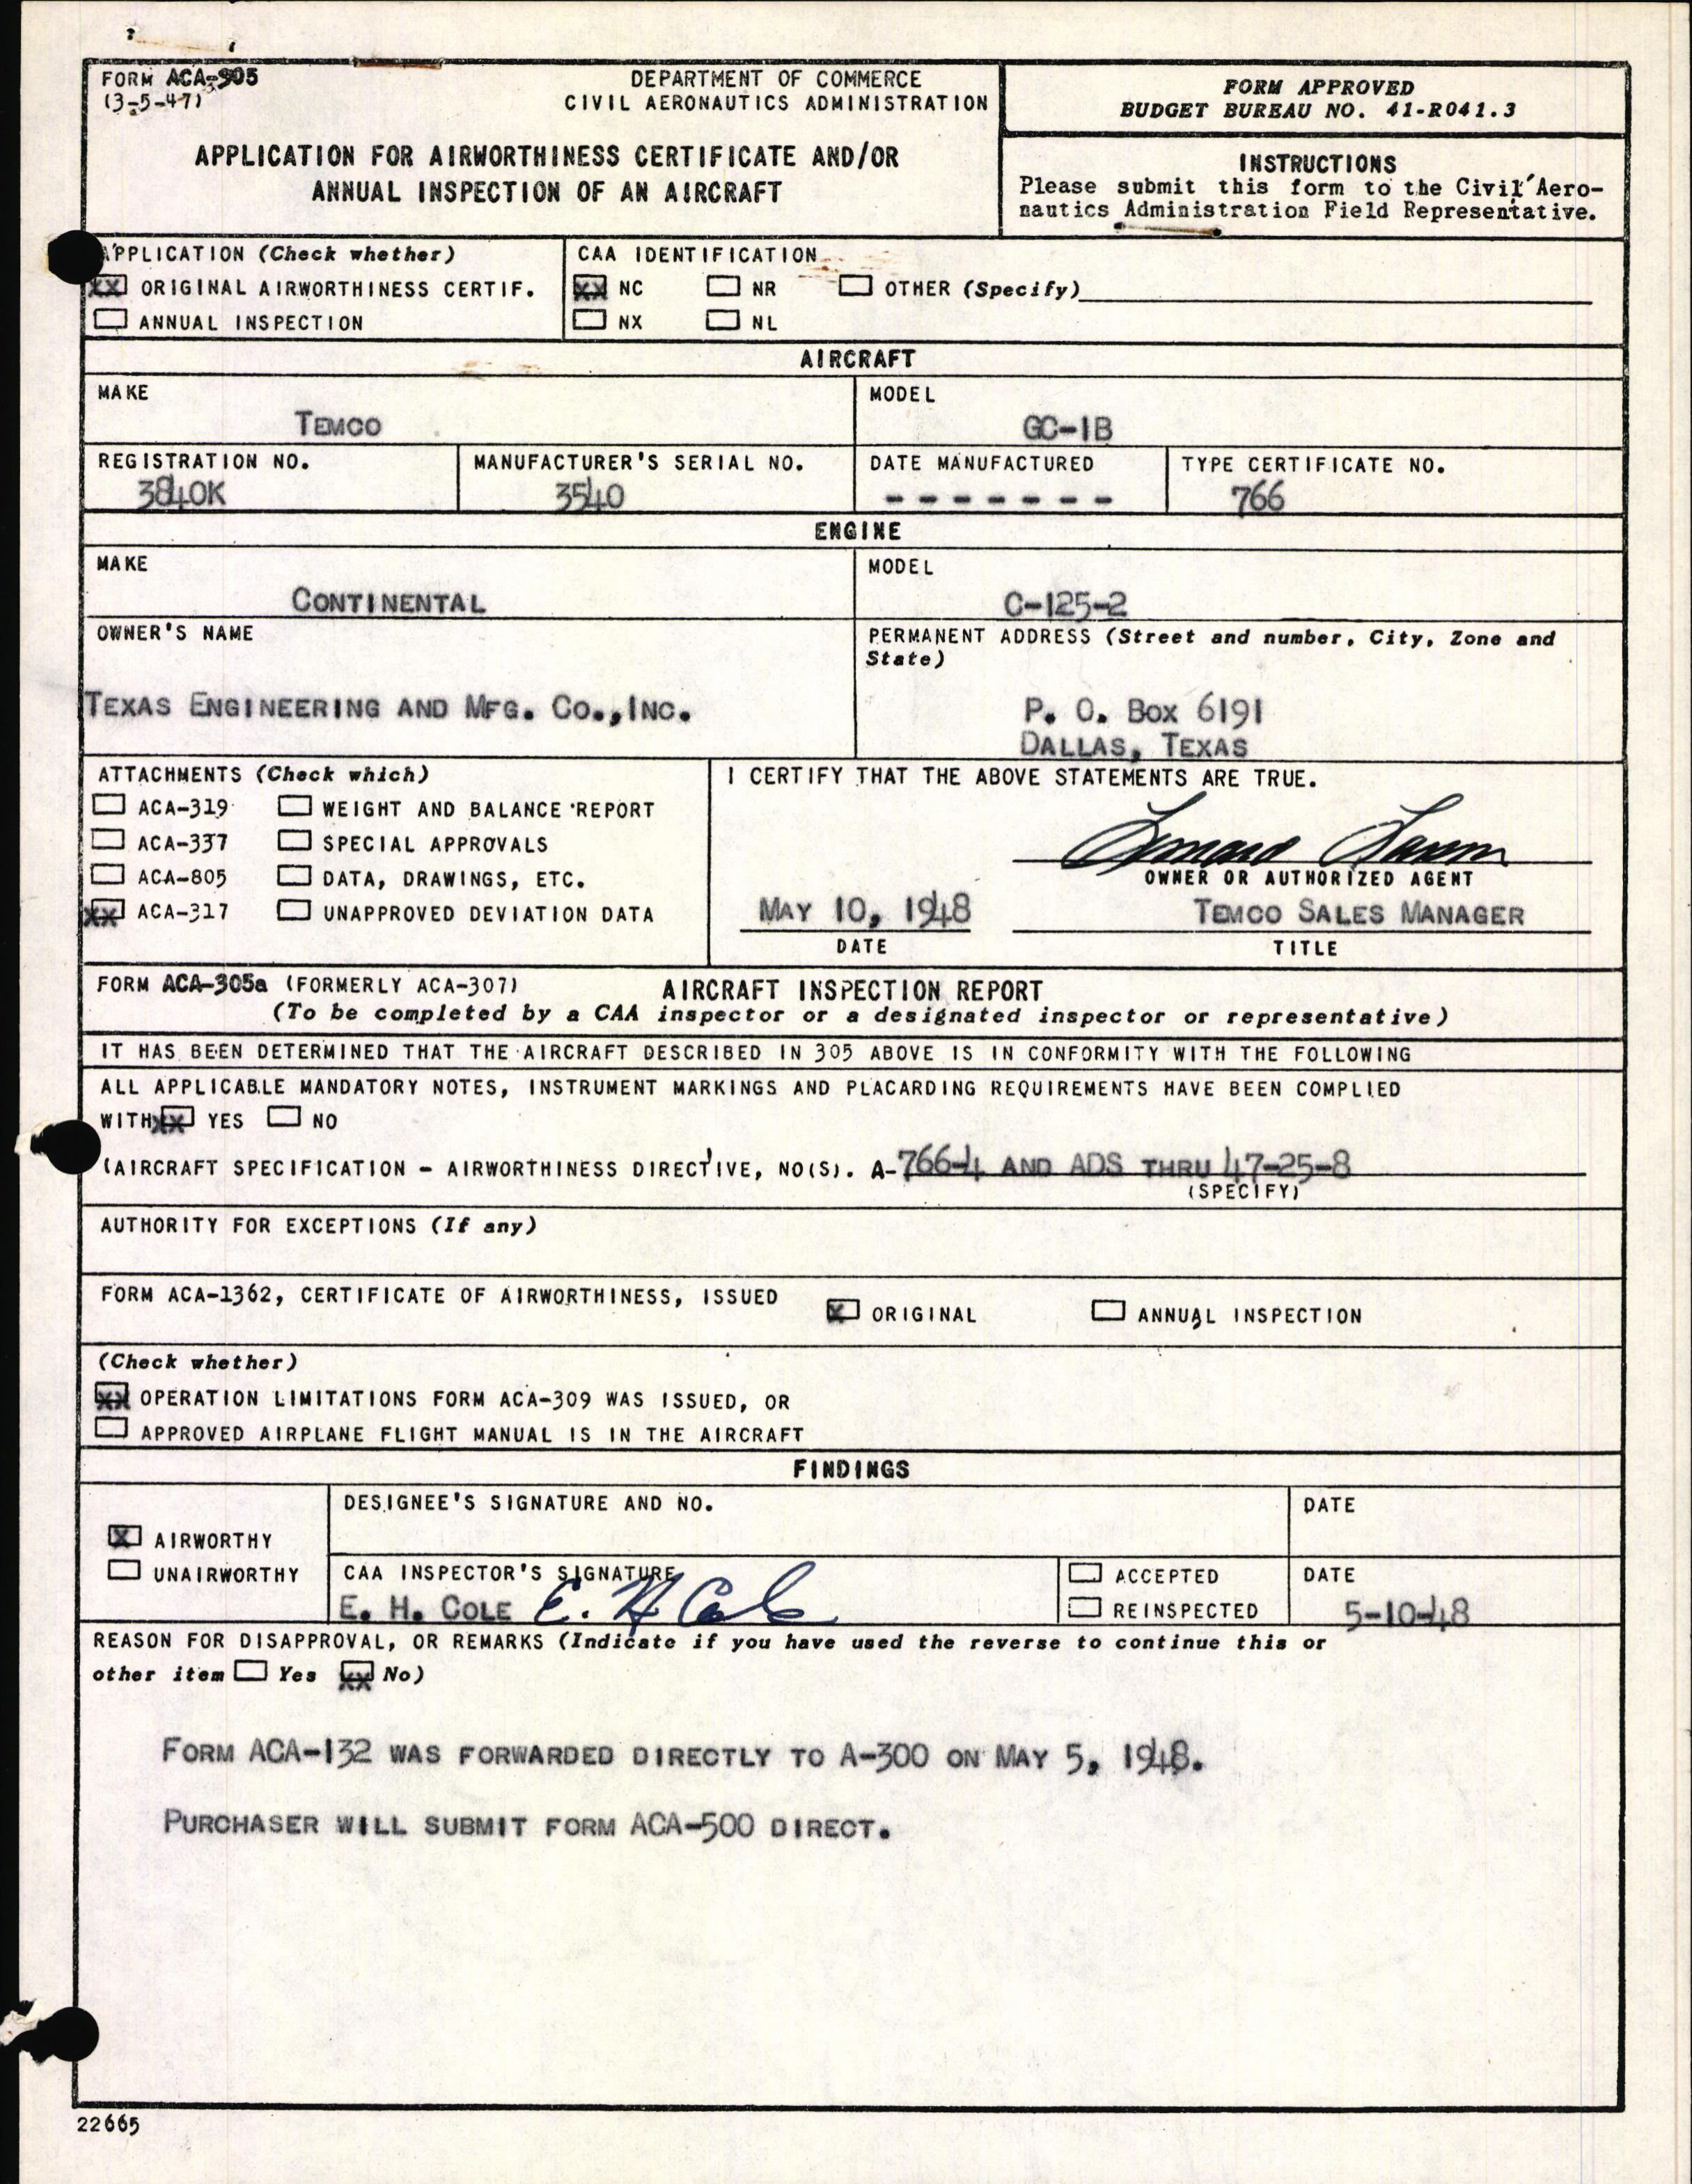 FORM ACA-305 DEPARTMENT OF COMMERCE
(3-5-47) CIVIL AERONAUTICS ADMINISTRATION
APPLICATION FOR AIRWORTHINESS CERTIFICATE AND/OR
ANNUAL INSPECTION OF AN AIRCRAFT
FORM APPROVED
BUDGET BUREAU NO. 41-R041.3
INSTRUCTIONS
Please submit this form to the Civil Aero-
nautics Administration Field Representative.
APPLICATION (Check whether)
XX ORIGINAL AIRWORTHINESS CERTIF.
ANNUAL INSPECTION
CAA IDENTIFICATION
XX NC NR OTHER (Specify)
NX NL
AIRCRAFT
MAKE MODEL
TEMCO GC-1B
REGISTRATION NO. MANUFACTURER'S SERIAL NO. DATE MANUFACTURED TYPE CERTIFICATE NO.
3840K 3540 - - - - - - - 766
ENGINE
MAKE MODEL
CONTINENTAL C-125-2
OWNER'S NAME
TEXAS ENGINEERING AND MFG. CO.,INC.
PERMANENT ADDRESS (Street and number, City, Zone and
State)
P. O. BOX 6191
DALLAS, TEXAS
ATTACHMENTS (Check which)
ACA-319 WEIGHT AND BALANCE REPORT
ACA-337 SPECIAL APPROVALS
ACA-805 DATA, DRAWINGS, ETC.
XX ACA-317 UNAPPROVED DEVIATION DATA
I CERTIFY THAT THE ABOVE STATEMENTS ARE TRUE.
OWNER OR AUTHORIZED AGENT
MAY 10, 1948 TEMCO SALES MANAGER
DATE TITLE
FORM ACA-305a (FORMERLY ACA-307) AIRCRAFT INSPECTION REPORT
(To be completed by a CAA inspector or a designated inspector or representative)
IT HAS BEEN DETERMINED THAT THE AIRCRAFT DESCRIBED IN 305 ABOVE IS IN CONFORMITY WITH THE FOLLOWING
ALL APPLICABLE MANDATORY NOTES, INSTRUMENT MARKINGS AND PLACARDING REQUIREMENTS HAVE BEEN COMPLIED
WITH XX YES NO
(AIRCRAFT SPECIFICATION - AIRWORTHINESS DIRECTIVE, NO(S). A-766-4 AND ADS THRU 47-25-8
(SPECIFY)
AUTHORITY FOR EXCEPTIONS (If any)
FORM ACA-1362, CERTIFICATE OF AIRWORTHINESS, ISSUED X ORIGINAL ANNUAL INSPECTION
(Check whether)
XX OPERATION LIMITATIONS FORM ACA-309 WAS ISSUED, OR
APPROVED AIRPLANE FLIGHT MANUAL IS IN THE AIRCRAFT
FINDINGS
X AIRWORTHY
UNAIRWORTHY
DESIGNEE'S SIGNATURE AND NO. DATE
CAA INSPECTOR'S SIGNATURE
E. H. COLE E. H Cole
ACCEPTED
REINSPECTED
DATE
5-10-48
REASON FOR DISAPPROVAL, OR REMARKS (Indicate if you have used the reverse to continue this or
other item Yes XX No)
FORM ACA-132 WAS FORWARDED DIRECTLY TO A-300 ON MAY 5, 1948.
PURCHASER WILL SUBMIT FORM ACA-500 DIRECT.
22665